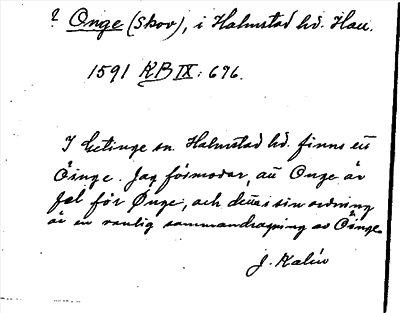 ? Onge (Skov), i Halmstad hd. Hall.
1591 KB IX: 696.
I Getinge sn. Halmstad hd. finns ett
Öinge. Jag förmodar, att Onge är
fel för Ønge, och detta i sin ordning
är en vanlig sammandragning av Öinge.
J. Kalén